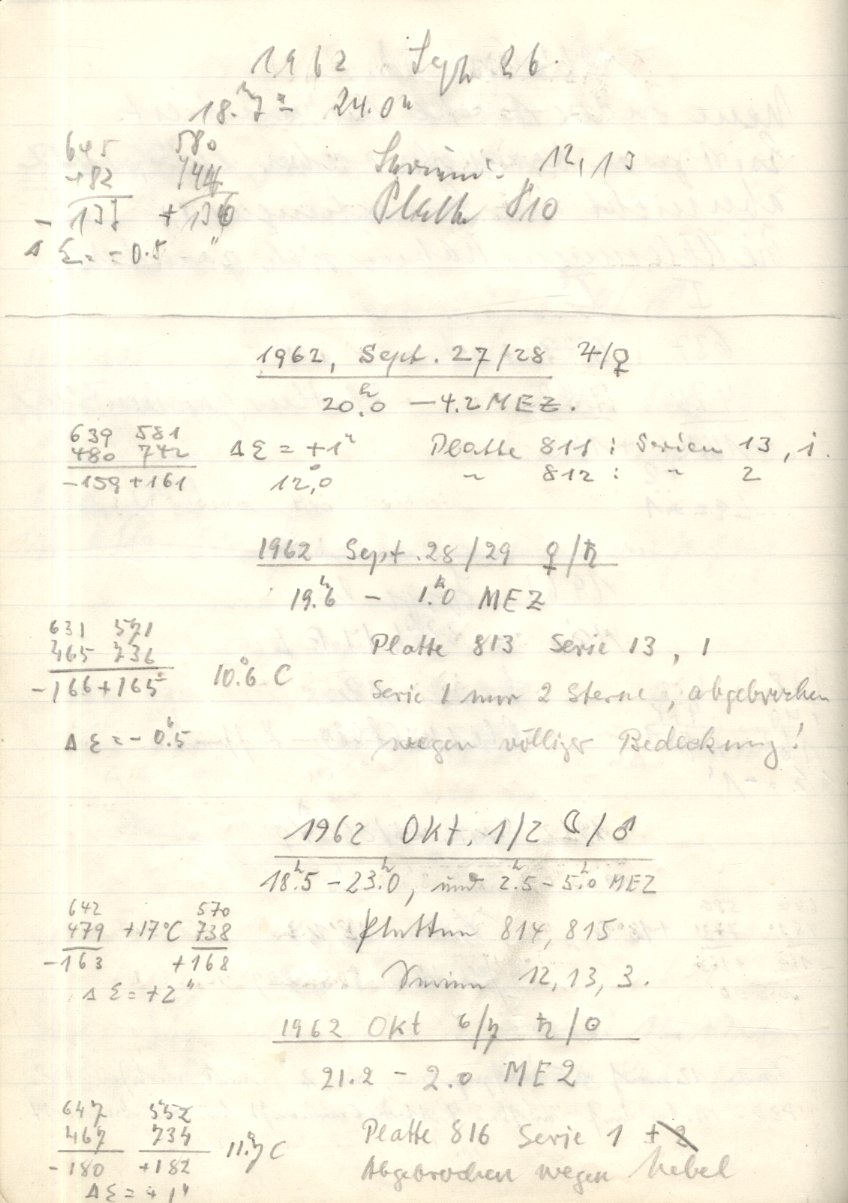 1962 Sept 26.
18.ʰ7 – 24.0ʰ
645 580
482 744 Serien: 12, 13
– 137 + 136 Platte 810
Δ Ɛ = – 0.5"
1962, Sept. 27/28 ♃/♀
20.ʰ0 – 4.2 MEZ.
639 581
480 742 Δ Ɛ = +1" Platte 811 : Serien 13, 1.
–159 +161 12.°0 " 812 : " 2
1962 Sept. 28/29 ♀/♄
19.ʰ6 – 1.ʰ0 MEZ
631 571
465 736 Platte 813 Serie 13, 1
–166 +165 10.°6 C Serie 1 nur 2 Sterne, abgebrochen
Δ Ɛ = – 0."5 wegen völliger Bedeckung!
1962 Okt. 1/2 ☾/♂
18.ʰ5 – 23.ʰ0, und 2.ʰ5 – 5.ʰ0 MEZ
642 570
479 +17°C 738 Platten 814, 815
–163 +168 Serien 12, 13, 3.
Δ Ɛ = +2"
1962 Okt 6/7 ♄/☉
21.2 – 2.0 MEZ
647 552
467 734 11.°7 C Platte 816 Serie 1 + 2
–180 +182 Abgebrochen wegen Nebel
Δ Ɛ = +1"